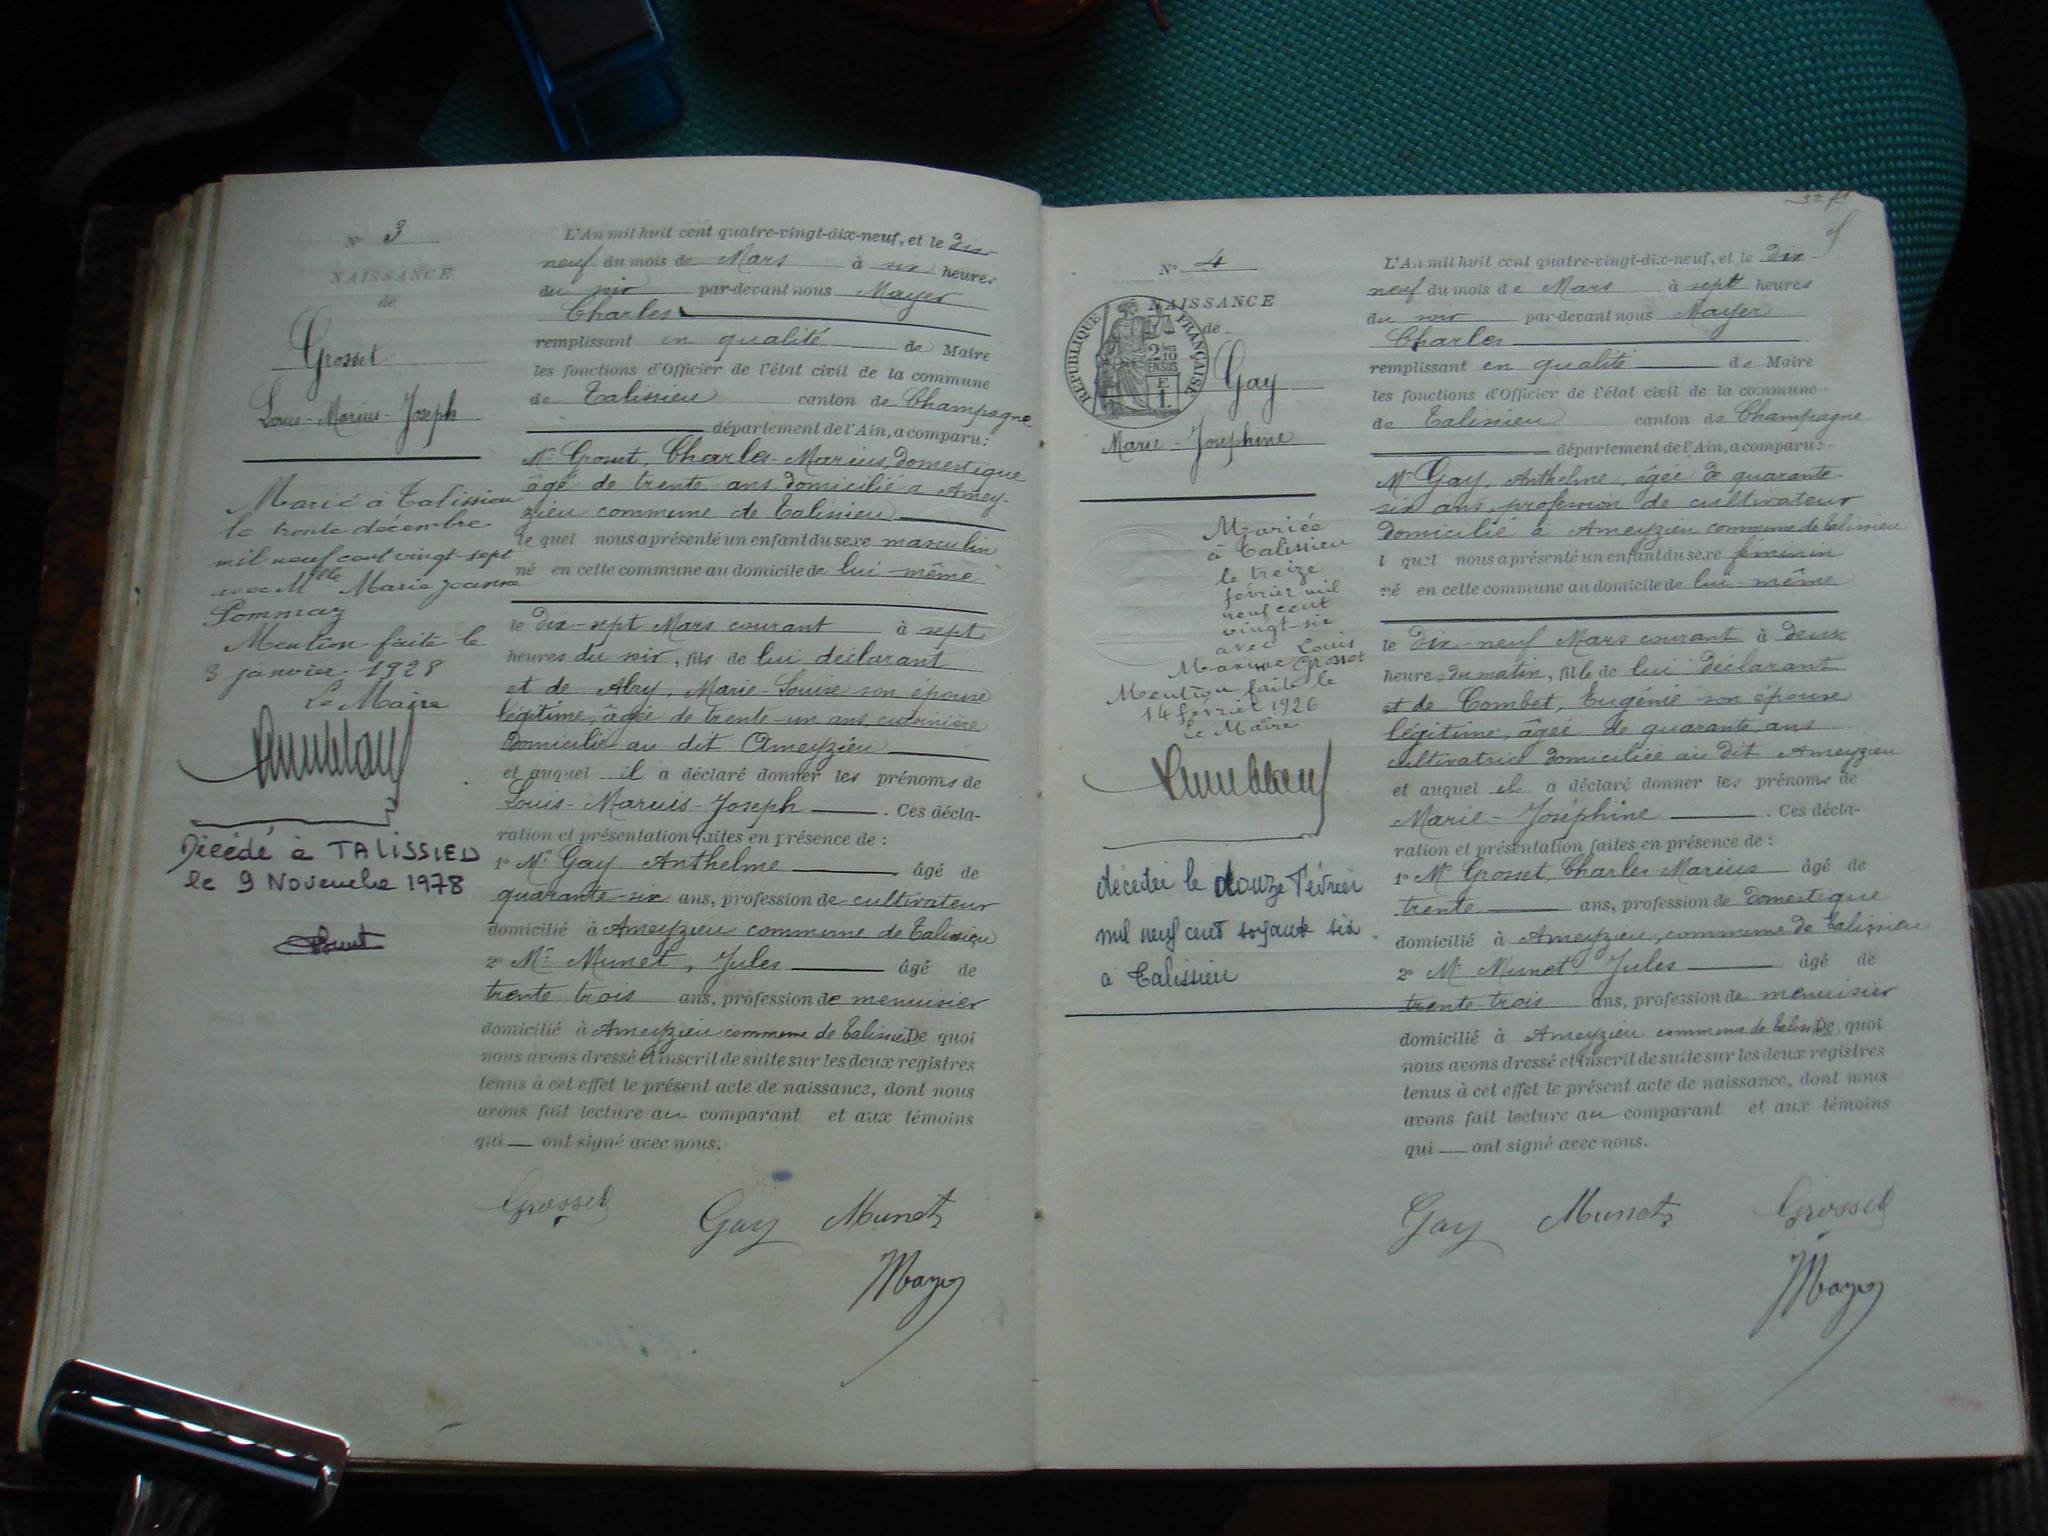 N° 3
NAISSANCE
de
Grosset
Louis-Marius-Joseph
Marié à Talissieu
le trente décembre
mil neuf cent vingt-sept
avec Mlle Marie Jeanne
Pommaz
Mention faite le
3 janvier 1928
Le Maire
Décédé à TALISSIEU
le 9 Novembre 1978
L'An mil huit cent quatre-vingt-dix-neuf, et le dix
neuf du mois de Mars à six heures
du soir par-devant nous Mayer
Charles
remplissant en qualité de Maire
les fonctions d'Officier de l'état civil de la commune
de Talissieu canton de Champagne
département de l'Ain, a comparu:
Mr Grosset, Charles-Marius, domestique
âgé de trente ans domicilié à Amey-
zieu commune de Talissieu
le quel nous a présenté un enfant du sexe masculin
né en cette commune au domicile de lui-même
le dix-sept Mars courant à sept
heures du soir, fils de lui déclarant
et de Abry, Marie-Louise son épouse
légitime, âgée de trente-un ans, cuisinière
domicilié au dit Ameyzieu
et auquel il a déclaré donner les prénoms de
Louis-Maruis-Joseph. Ces décla-
ration et présentation faites en présence de :
1° Mr Gay Anthelme âgé de
quarante-six ans, profession de cultivateur
domicilié à Ameyzieu commune de Talissieu
2° Mr Munet, Jules âgé de
trente trois ans, profession de menuisier
domicilié à Ameyzieu commune de Talissieu De quoi
nous avons dressé et inscrit de suite sur les deux registres
tenus à cet effet le présent acte de naissance, dont nous
avons fait lecture au comparant et aux témoins
qui ont signé avec nous.
Grosset Gay Munet
Mayer
N° 4
NAISSANCE
de
REPUBLIQUE FRANÇAISE
2/10
EN SUS
Gay
Marie-Joséphine
Mariée
à Talissieu
le treize
février mil
neuf cent
vingt-six
avec Louis
Marius Grosset
Mention faite le
14 février 1926
Le Maire
décédée le douze Février
mil neuf cent soixante six
à Talissieu
L'An mil huit cent quatre-vingt-dix-neuf, et le dix
neuf du mois de Mars à sept heures
du soir par-devant nous Mayer
Charles
remplissant en qualité de Maire
les fonctions d'Officier de l'état civil de la commune
de Talissieu canton de Champagne
département de l'Ain, a comparu :
Mr Gay, Anthelme, âgée de quarante-
six ans, profession de cultivateur
domicilié à Ameyzieu commune de Talissieu
l quel nous a présenté un enfant du sexe féminin
né en cette commune au domicile de lui-même
le dix-neuf Mars courant à deux
heure, du matin, fille de lui déclarant
et de Combet, Eugénie son épouse
légitime, âgée de quarante, ans
cultivatrice domiciliée au dit Ameyzieu
et auquel il a déclaré donner les prénoms de
Marie-Joséphine. Ces décla-
ration et présentation faites en présence de :
1° Mr Grosset, Charles Marius âgé de
trente ans, profession de domestique
domicilié à Ameyzieu, commune de Talissieu
2° Mr Munet Jules âgé de
trente-trois ans, profession de menuisier
domicilié à Ameyzieu commune de Talissieu De quoi
nous avons dressé et inscrit de suite sur les deux registres
tenus à cet effet le présent acte de naissance, dont nous
avons fait lecture au comparant et aux témoins
qui ont signé avec nous.
Gay Munet Grosset
Mayer